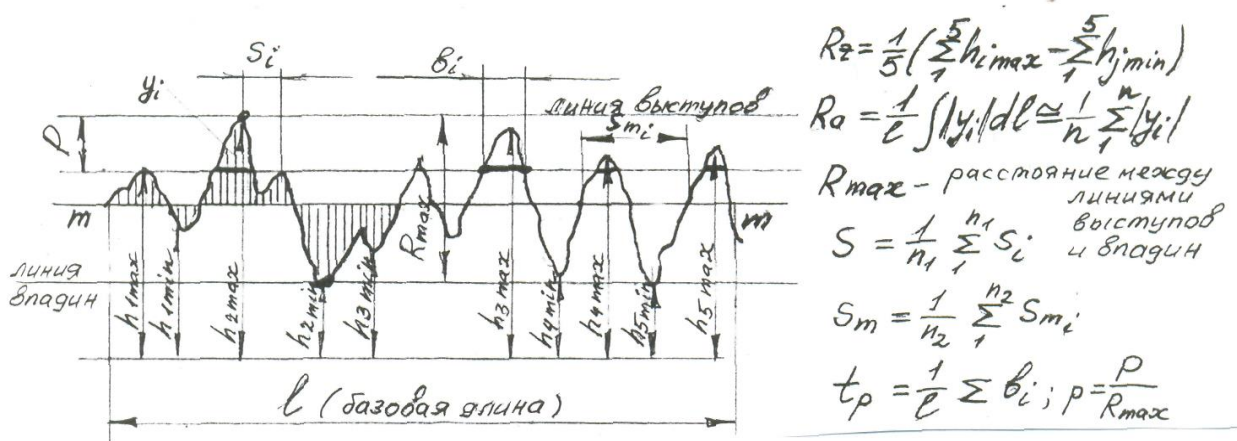 Si
bi
yi
линия выступов
Smi
P
m
Rmax
m
линия
впадин
h1max
h1min
h2max
h2min
h3min
h3max
h4min
h4max
h5min
h5max
l (базовая длина)
Rz = 1/5 (∑₁⁵ himax − ∑₁⁵ hjmin)
Ra = 1/l ∫|yi|dl ≅ 1/n ∑₁ⁿ |yi|
Rmax - расстояние между
линиями
выступов
и впадин
S = 1/n1 ∑₁ⁿ¹ Si
Sm = 1/n2 ∑₁ⁿ² Smi
tp = 1/l ∑ bi ; p = P/Rmax